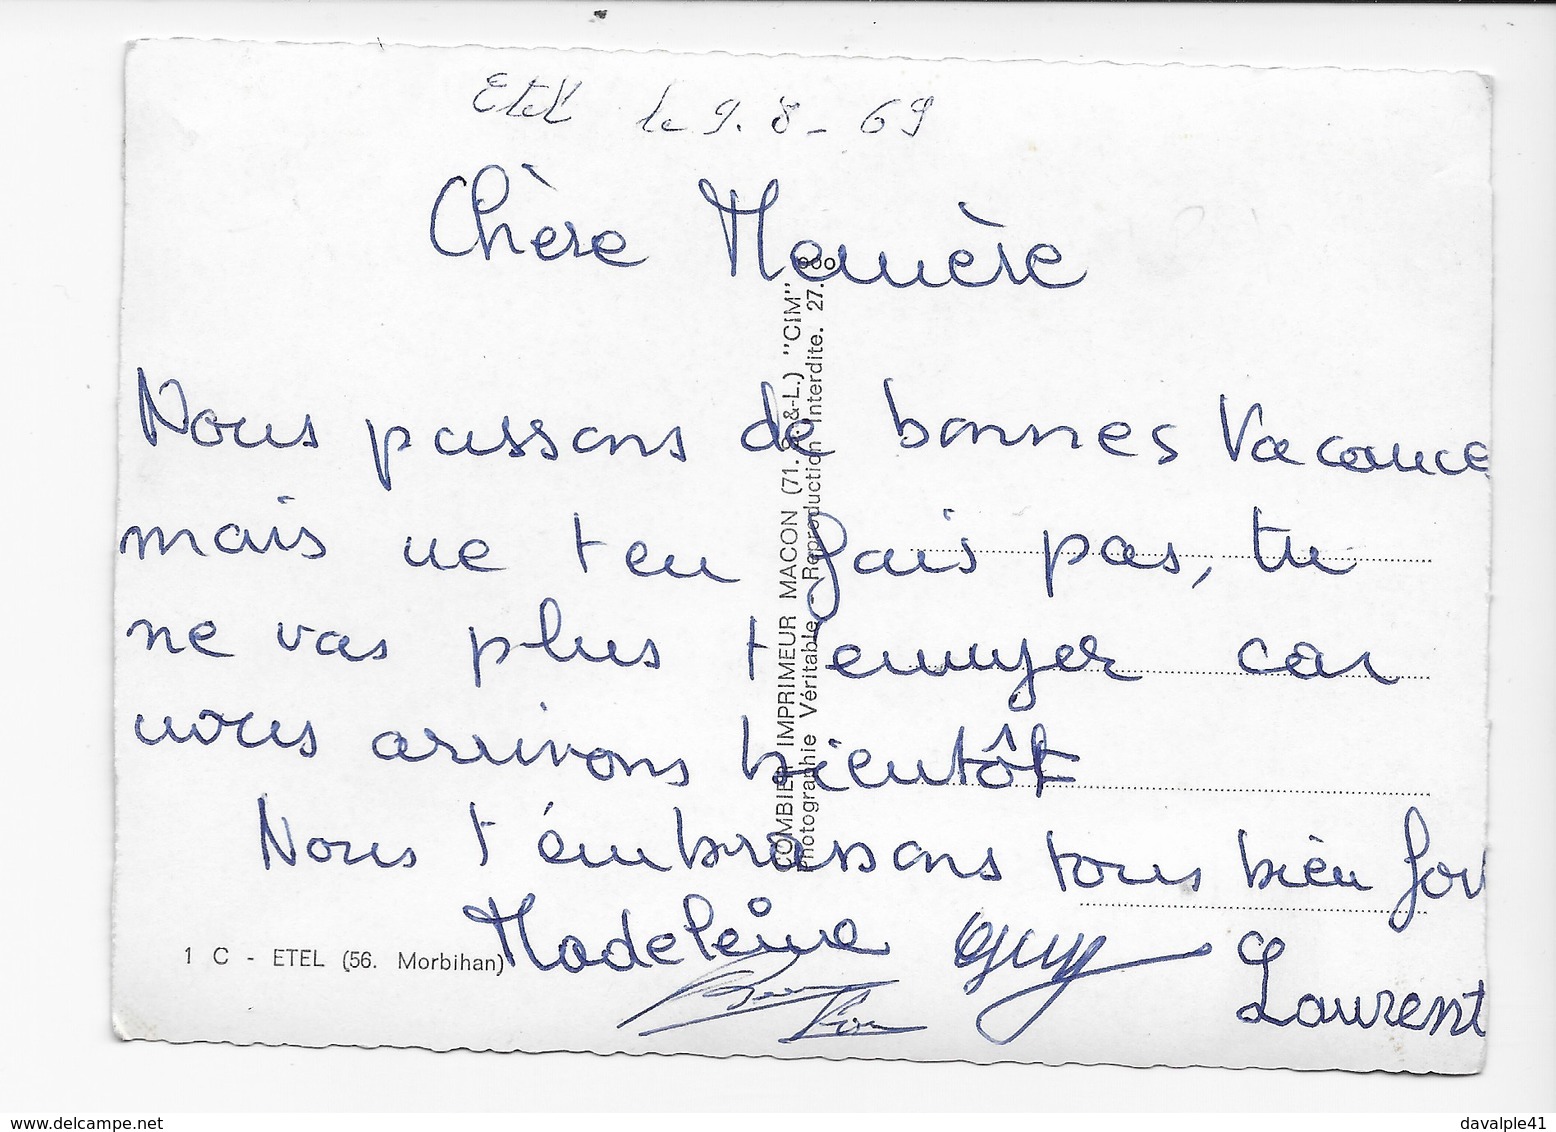 Etel le 9.8-69
Chère Mémère
Nous passons de bonnes Vacance
mais ne t'en fais pas, tu
ne vas plus t'ennuyer car
nous arrivons bientôt
Nous t'émbrassons tous bien for
Madeleine Guy
Laurent
1 C - ETEL (56. Morbihan)
COMBIER IMPRIMEUR MACON (71. S.-&-L.) "CIM"
Photographie Véritable - Reproduction Interdite. 27.
www.delcampe.net
davalple41